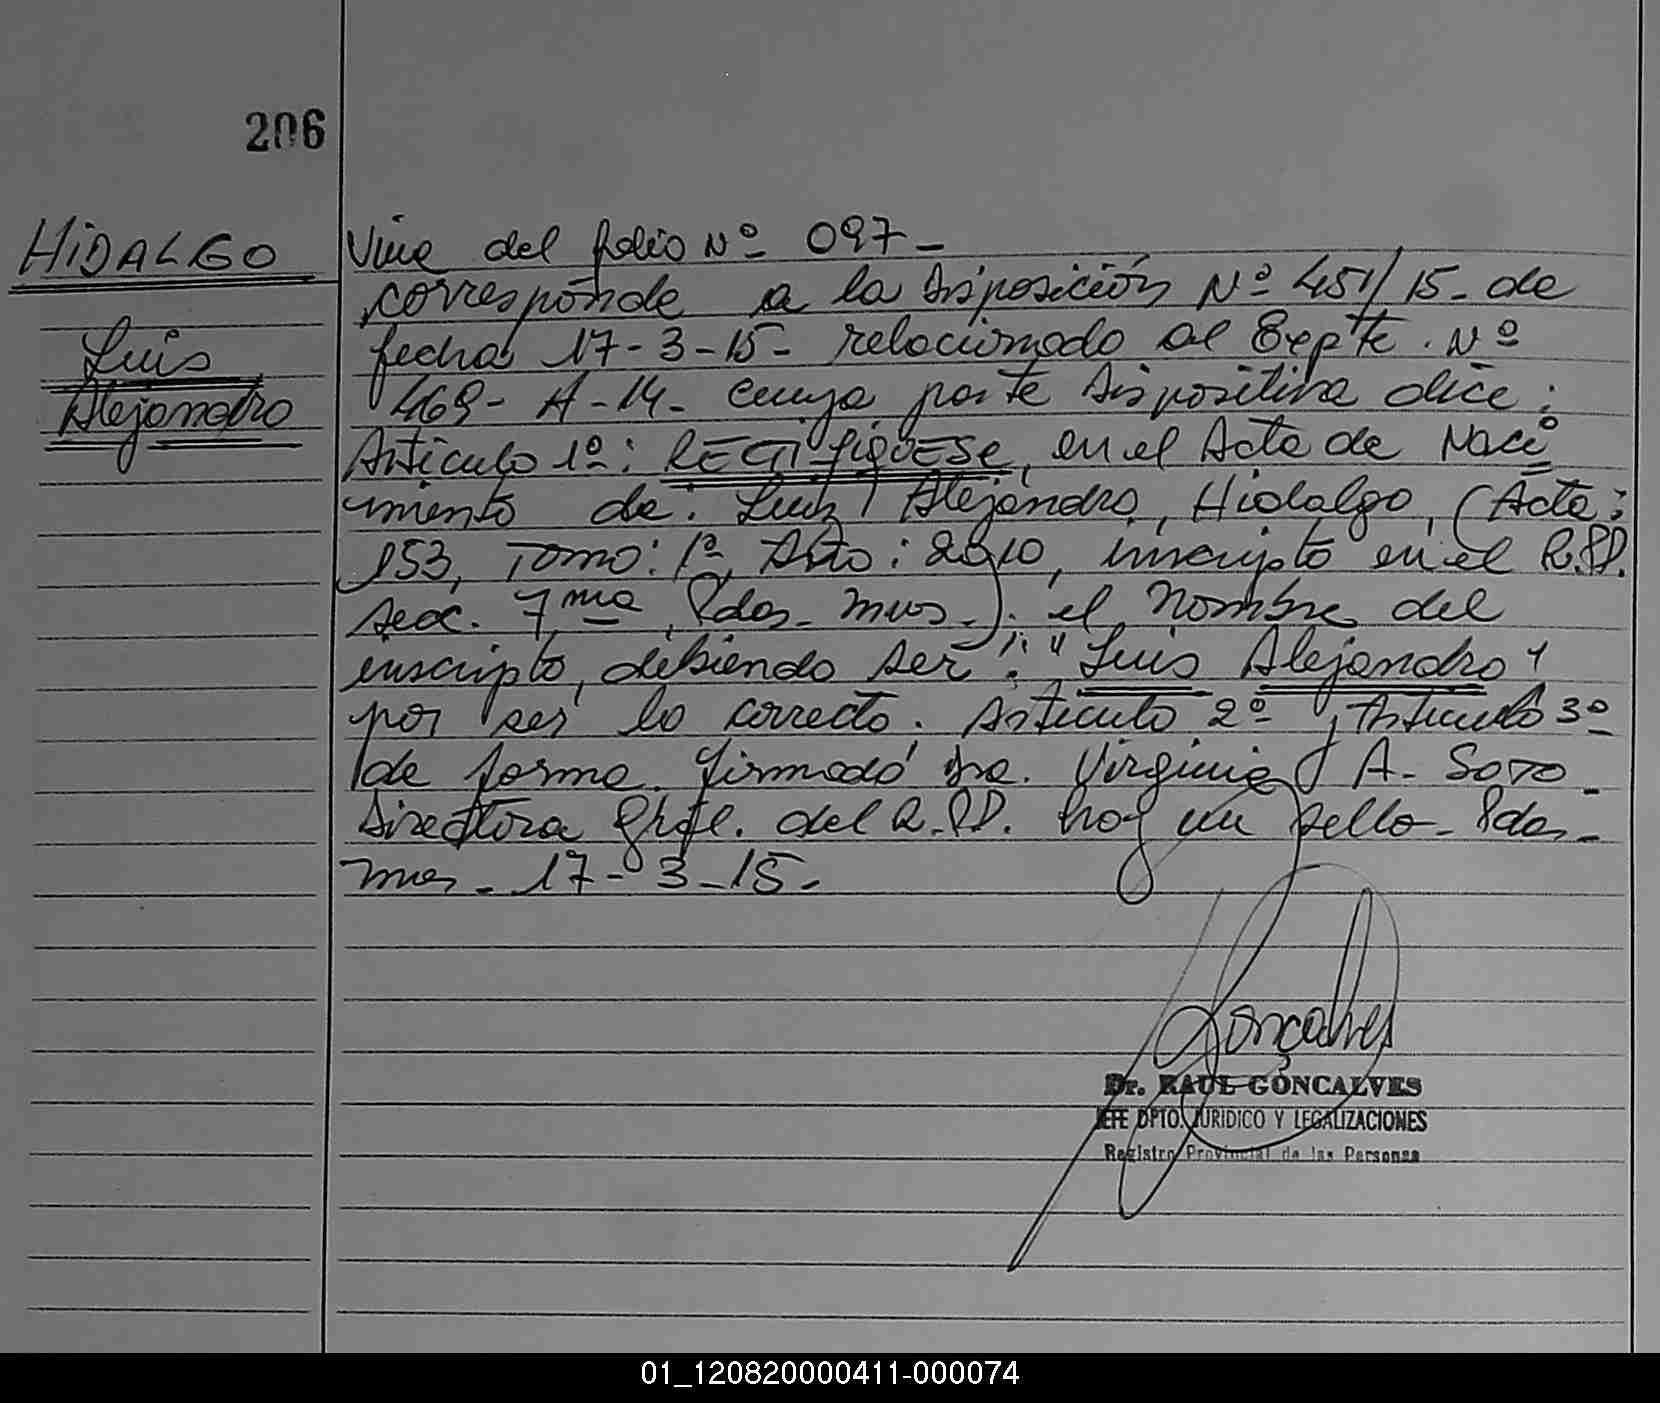 206
HIDALGO
Luis
Alejandro
Vine del folio Nº 097-
corresponde a la Disposición Nº 451/15- de
fecha 17-3-15- relacionado al Expte. Nº
469- A-14- cuya parte dispositiva dice:
Artículo 1º: RECTIFIQUESE, en el Acta de Naci
miento de: Luiz Alejandro, Hidalgo, (Acta:
153, Tomo: 1º, Año: 2010, inscripto en el R.P.P.
secc. 7ma, Pdas. Mnes.). el Nombre del
inscripto, debiendo ser: "Luis Alejandro"
por ser lo correcto. Artículo 2º, Artículo 3º
de forma. Firmado Dra. Virginia A. Soto-
Directora Gral. del R.P.P. hay un sello- Pdas-
Mnes- 17-3-15-
Goncalves
Dr. RAUL GONCALVES
JEFE DPTO. JURIDICO Y LEGALIZACIONES
Registro Provincial de las Personas
01_120820000411-000074